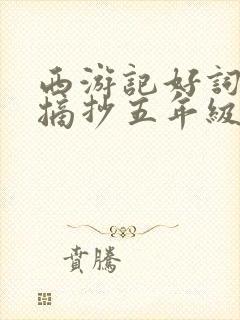 西游記好詞
摘抄五年級
賁騰